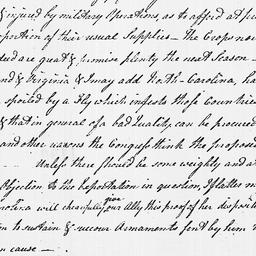 & injured by military Operations, as to afford at pre
portion of their usual Supplies — The Crops now
ded are great & promise plenty the next Season —
nd & Virginia & I may add North-Carolina, ha
spoiled by a Fly which infests those Countries
& that in general of a bad Quality, can be procured
and other reasons the Congress think the proposi
Unless there should be some weighty and
Objection to the Exportation in question I flatter m
rolina will chearfully give our Ally this proof of her disposit
to sustain & succour Armaments sent by him
n cause —